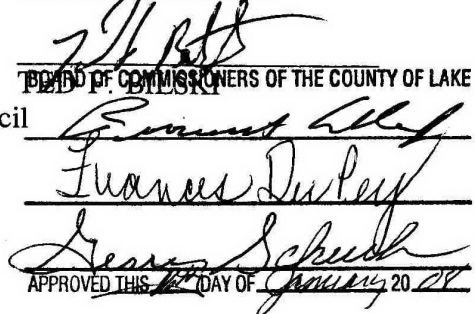 TED F. BILSKI
BOARD OF COMMISSIONERS OF THE COUNTY OF LAKE
cil
Frances DuPey
Gerry Scheub
APPROVED THIS DAY OF January 20 08